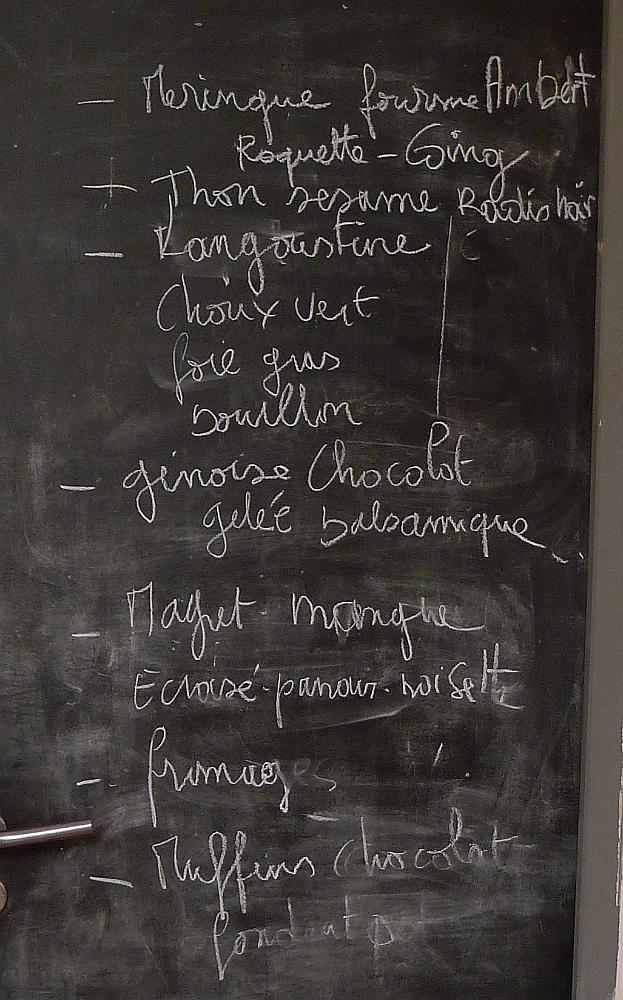 – Meringue fourme Ambert
Roquette – Ging
+ Thon sesame Radis noir
– Langoustine
Choux vert
foie gras
bouillon
– génoise Chocolat
gelée balsamique
– Magret - mangue
Ecrasé - panais - noisette
– fromages
– Muffins chocolat
fondant